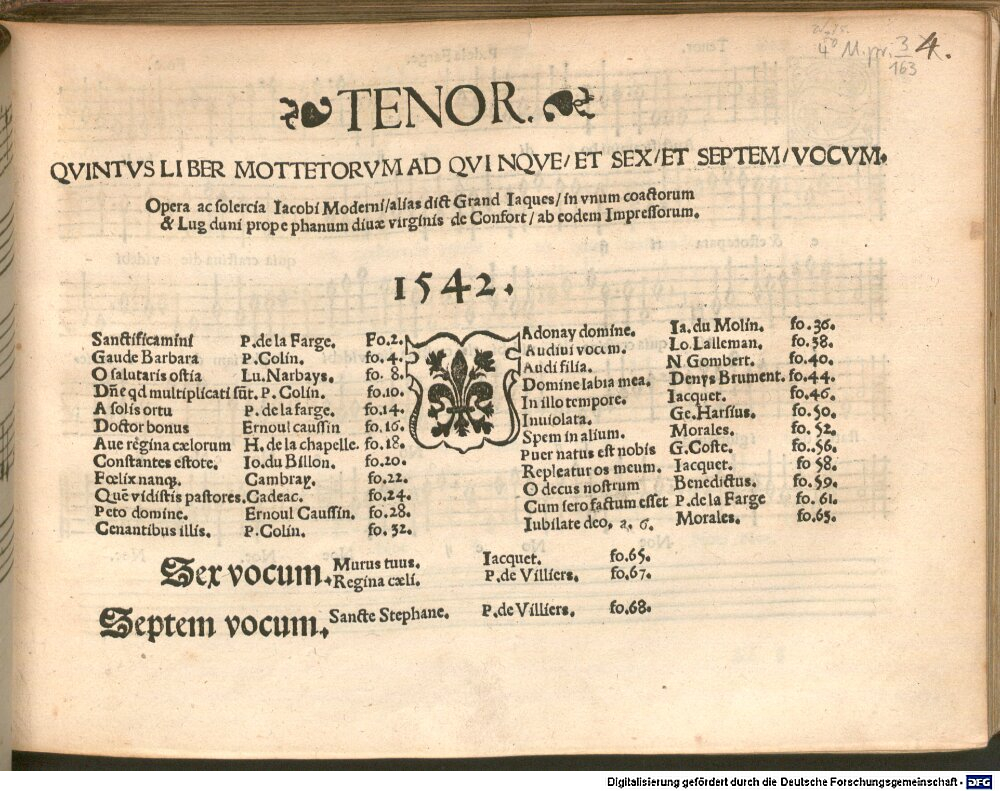 4° M.pr. 3/163 4.
TENOR.
QVINTVS LIBER MOTTETORVM AD QVINQVE/ ET SEX/ ET SEPTEM/ VOCVM.
Opera ac solercia Iacobi Moderni/alias dict Grand Iaques/ in vnum coactorum
& Lug duni prope phanum diuæ virginis de Confort/ ab eodem Impressorum.
1542.
Sanctificamini P.de la Farge. Fo.2.
Gaude Barbara P.Colin. fo.4.
O salutaris ostia Lu.Narbays. fo. 8.
Dñe qd multiplicati sũt. P. Colin. fo.10.
A solis ortu P. de la farge. fo.14.
Doctor bonus Ernoul caussin fo.16.
Aue regina cælorum H. de la chapelle. fo.18.
Constantes estote. Io.du Billon. fo.20.
Fœlix nanq. Cambray. fo.22.
Quē vidistis pastores. Cadeac. fo.24.
Peto domine. Ernoul Caussin. fo.28.
Cenantibus illis. P.Colin. fo.32.
Adonay domine. Ia.du Molin. fo.36.
Audiui vocem. Lo.Lalleman. fo.38.
Audi filia. N.Gombert. fo.40.
Domine labia mea. Denys Brument. fo.44.
In illo tempore. Iacquet. fo.46.
Inuiolata. Ge.Harsius. fo.50.
Spem in alium. Morales. fo.52.
Puer natus est nobis G.Coste. fo..56.
Repleatur os meum. Iacquet. fo 58.
O decus nostrum Benedictus. fo.59.
Cum sero factum esset P.de la Farge fo. 61.
Iubilate deo, a, 6. Morales. fo.63.
Sex vocum. Murus tuus. Iacquet. fo.65.
Regina cæli. P.de Villiers. fo.67.
Septem vocum. Sancte Stephane. P.de Villiers. fo.68.
Digitalisierung gefördert durch die Deutsche Forschungsgemeinschaft - DFG